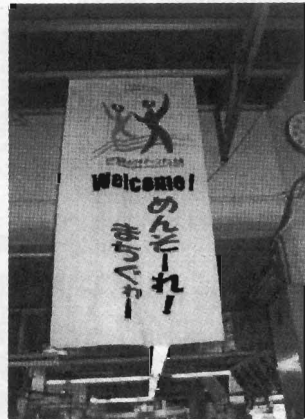 Welcome!
めんそーれ!
まちぐゎー